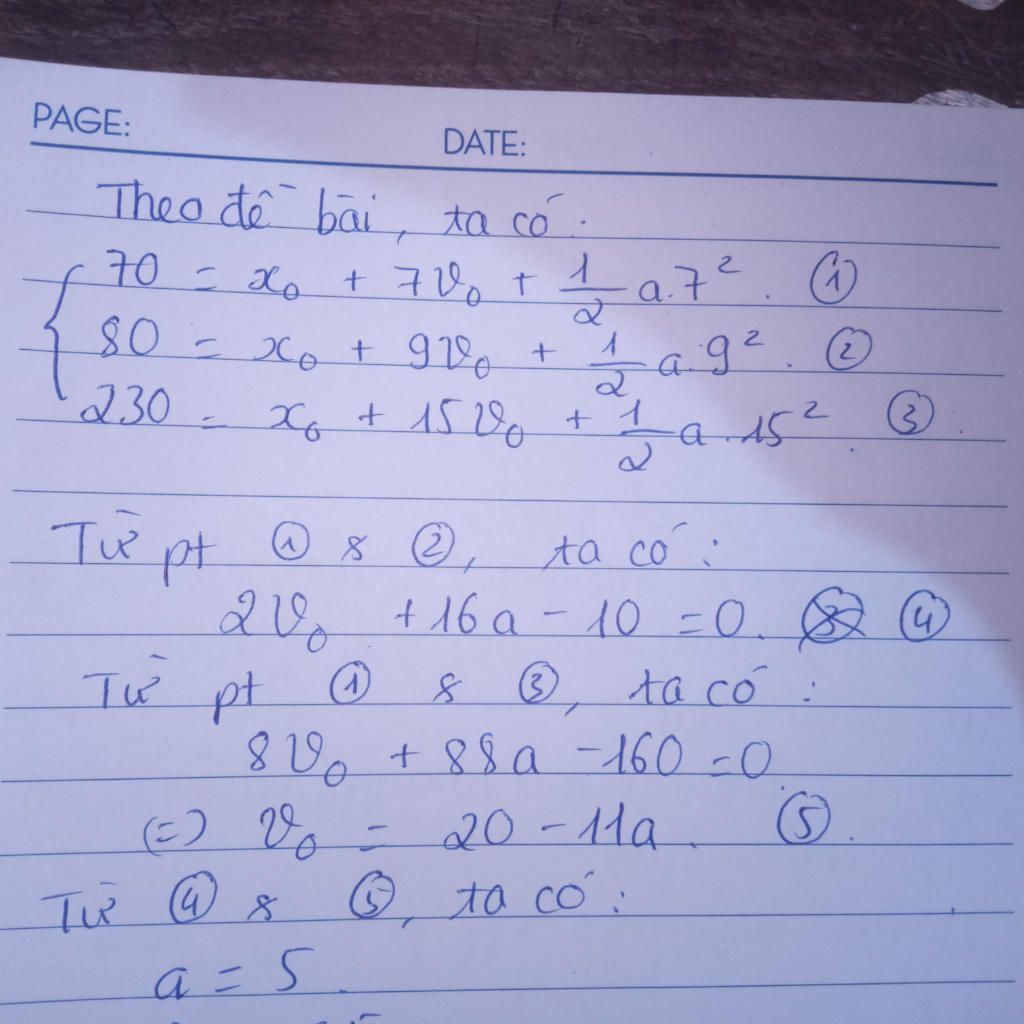 PAGE: DATE:
Theo đề bài, ta có:
70 = x₀ + 7v₀ + 1/2 a.7². ①
80 = x₀ + 9v₀ + 1/2 a.9². ②
230 = x₀ + 15v₀ + 1/2 a.15². ③.
Từ pt ① & ②, ta có:
2v₀ + 16a - 10 = 0. ④
Từ pt ① & ③, ta có:
8v₀ + 88a - 160 = 0
(=) v₀ = 20 - 11a. ⑤.
Từ ④ & ⑤, ta có:
a = 5.